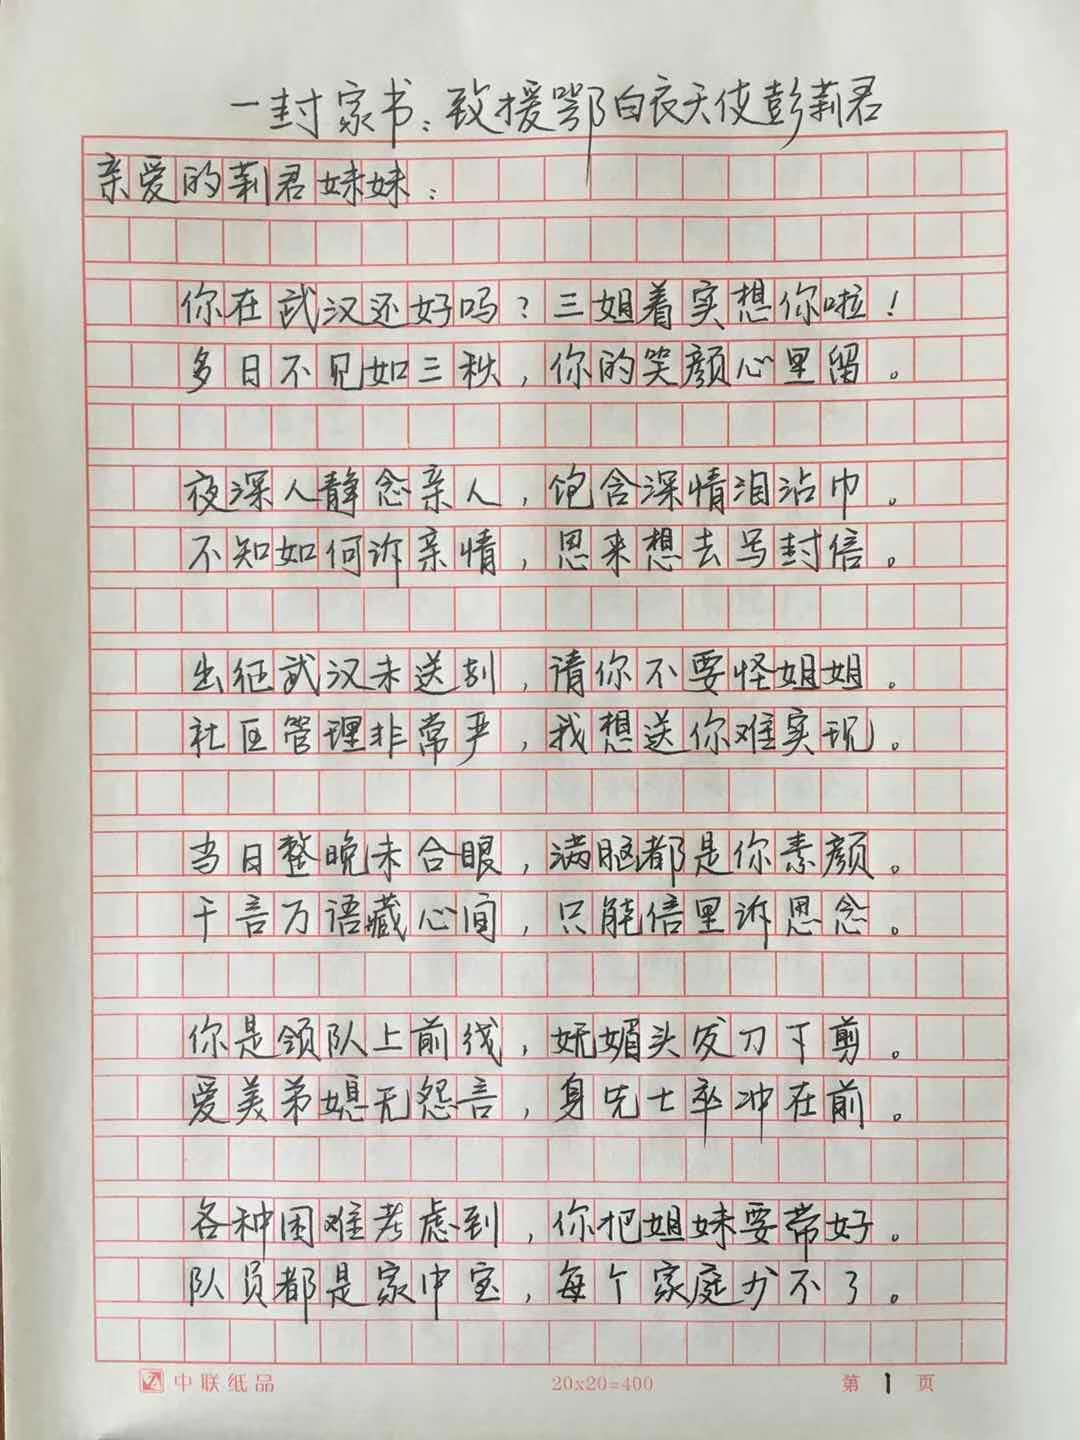 一封家书：致援鄂白衣天使彭莉君
亲爱的莉君妹妹：
你在武汉还好吗？三姐着实想你啦！
多日不见如三秋，你的笑颜心里留。
夜深人静念亲人，饱含深情泪沾巾。
不知如何诉亲情，思来想去写封信。
出征武汉未送别，请你不要怪姐姐。
社区管理非常严，我想送你难实现。
当日整晚未合眼，满脑都是你素颜。
千言万语藏心间，只能信里诉思念。
你是领队上前线，妩媚头发刀下剪。
爱美弟媳无怨言，身先士卒冲在前。
各种困难考虑到，你把姐妹要带好。
队员都是家中宝，每个家庭少不了。
中联纸品 20x20=400 第 1 页